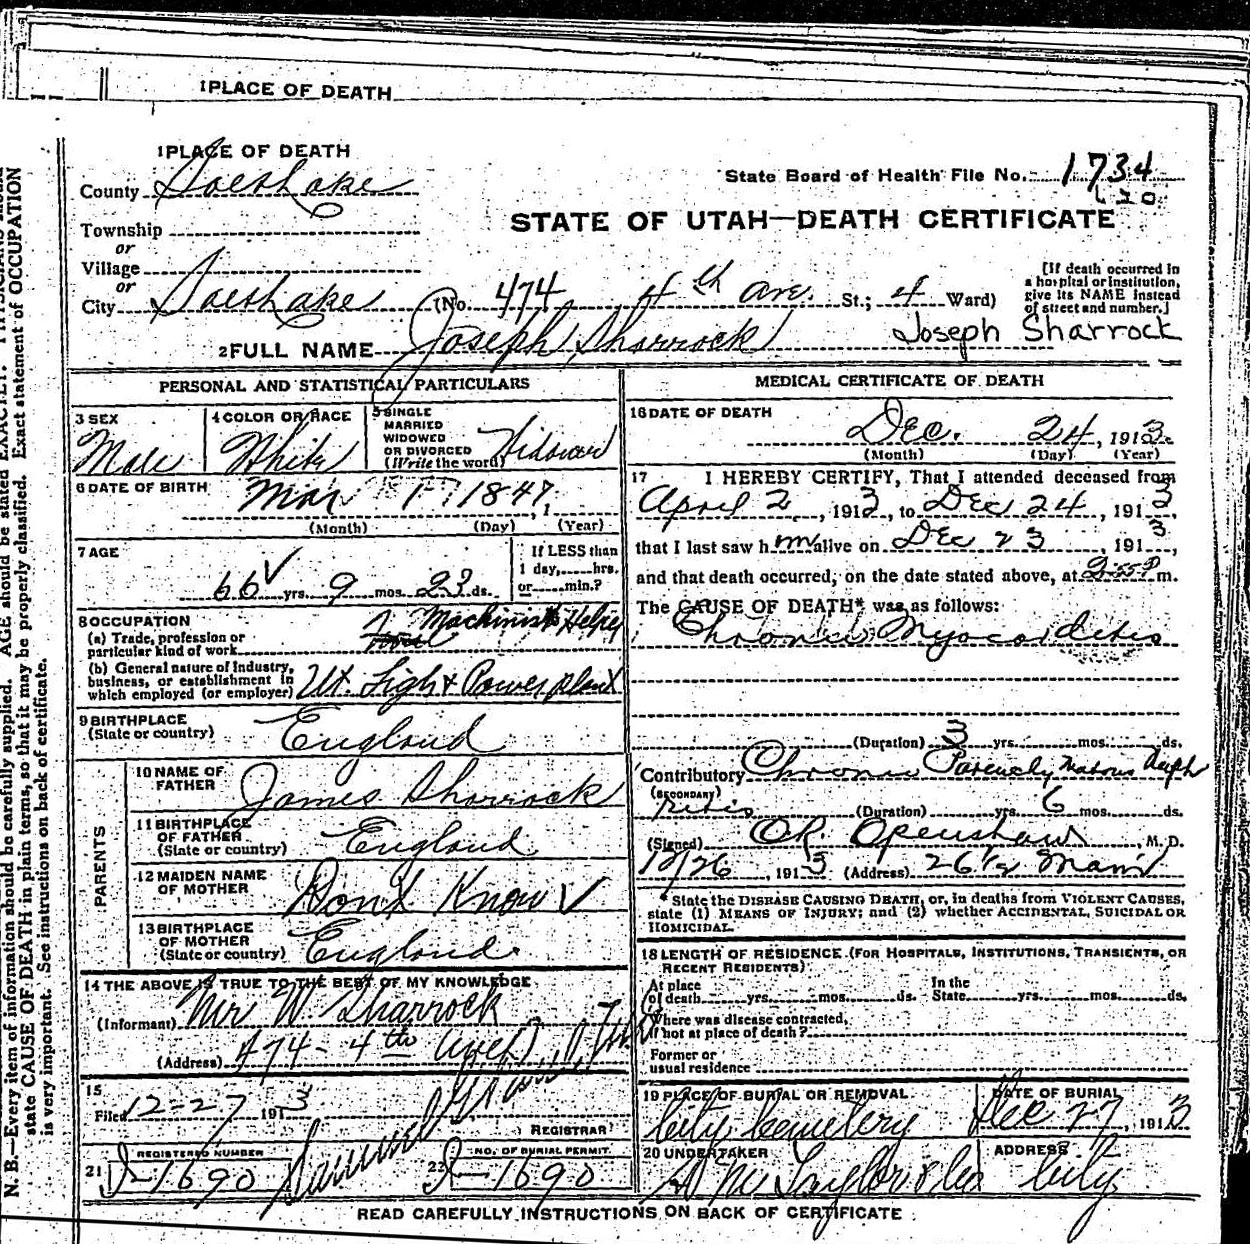 1 PLACE OF DEATH
1 PLACE OF DEATH
County Salt Lake
State Board of Health File No. 1734
120
Township
STATE OF UTAH—DEATH CERTIFICATE
or
Village
or
City Salt Lake (No. 474 4th Ave. St.; 4 Ward)
[If death occurred in
a hospital or institution,
give its NAME instead
of street and number.]
2 FULL NAME Joseph Sharrock Joseph Sharrock
PERSONAL AND STATISTICAL PARTICULARS
3 SEX
Male
4 COLOR OR RACE
White
5 SINGLE
MARRIED
WIDOWED
OR DIVORCED
(Write the word) Widower
6 DATE OF BIRTH Mar 1 1847
(Month) (Day) (Year)
7 AGE
66 yrs. 9 mos. 23 ds.
If LESS than
1 day, hrs.
or min.?
8 OCCUPATION
(a) Trade, profession or
particular kind of work Machinist Helper
(b) General nature of Industry,
business, or establishment in
which employed (or employer) Ut. Light & Power plant
9 BIRTHPLACE
(State or country) England
PARENTS
10 NAME OF
FATHER James Sharrock
11 BIRTHPLACE
OF FATHER
(State or country) England
12 MAIDEN NAME
OF MOTHER Don't Know
13 BIRTHPLACE
OF MOTHER
(State or country) England
14 THE ABOVE IS TRUE TO THE BEST OF MY KNOWLEDGE
(Informant) Mr W. Sharrock
(Address) 474 - 4th Ave
15
Filed 12-27 1913
REGISTRAR
REGISTERED NUMBER
21 1690
NO. OF BURIAL PERMIT
22 1690
MEDICAL CERTIFICATE OF DEATH
16 DATE OF DEATH
Dec. 24, 1913.
(Month) (Day) (Year)
17 I HEREBY CERTIFY, That I attended deceased from
April 2, 1913, to Dec 24, 1913,
that I last saw h im alive on Dec 23, 1913,
and that death occurred, on the date stated above, at m.
The CAUSE OF DEATH* was as follows:
Chronic Myocarditis
(Duration) 3 yrs. mos. ds.
Contributory Chronic Parenchymatous Neph
(SECONDARY)
ritis (Duration) yrs. 6 mos. ds.
(Signed) Openshaw, M. D.
12/26, 1913 (Address) 26 1/2 Main
* State the DISEASE CAUSING DEATH, or, in deaths from VIOLENT CAUSES,
state (1) MEANS OF INJURY; and (2) whether ACCIDENTAL, SUICIDAL OR
HOMICIDAL.
18 LENGTH OF RESIDENCE (FOR HOSPITALS, INSTITUTIONS, TRANSIENTS, OR
RECENT RESIDENTS)
At place
of death yrs. mos. ds.
In the
State yrs. mos. ds.
Where was disease contracted,
if not at place of death?
Former or
usual residence
19 PLACE OF BURIAL OR REMOVAL
City Cemetery
DATE OF BURIAL
Dec 27, 1913
20 UNDERTAKER
ADDRESS
City
READ CAREFULLY INSTRUCTIONS ON BACK OF CERTIFICATE
N. B.—Every item of information should be carefully supplied. AGE should be stated EXACTLY.
state CAUSE OF DEATH in plain terms, so that it may be properly classified. Exact statement of OCCUPATION
is very important. See instructions on back of certificate.